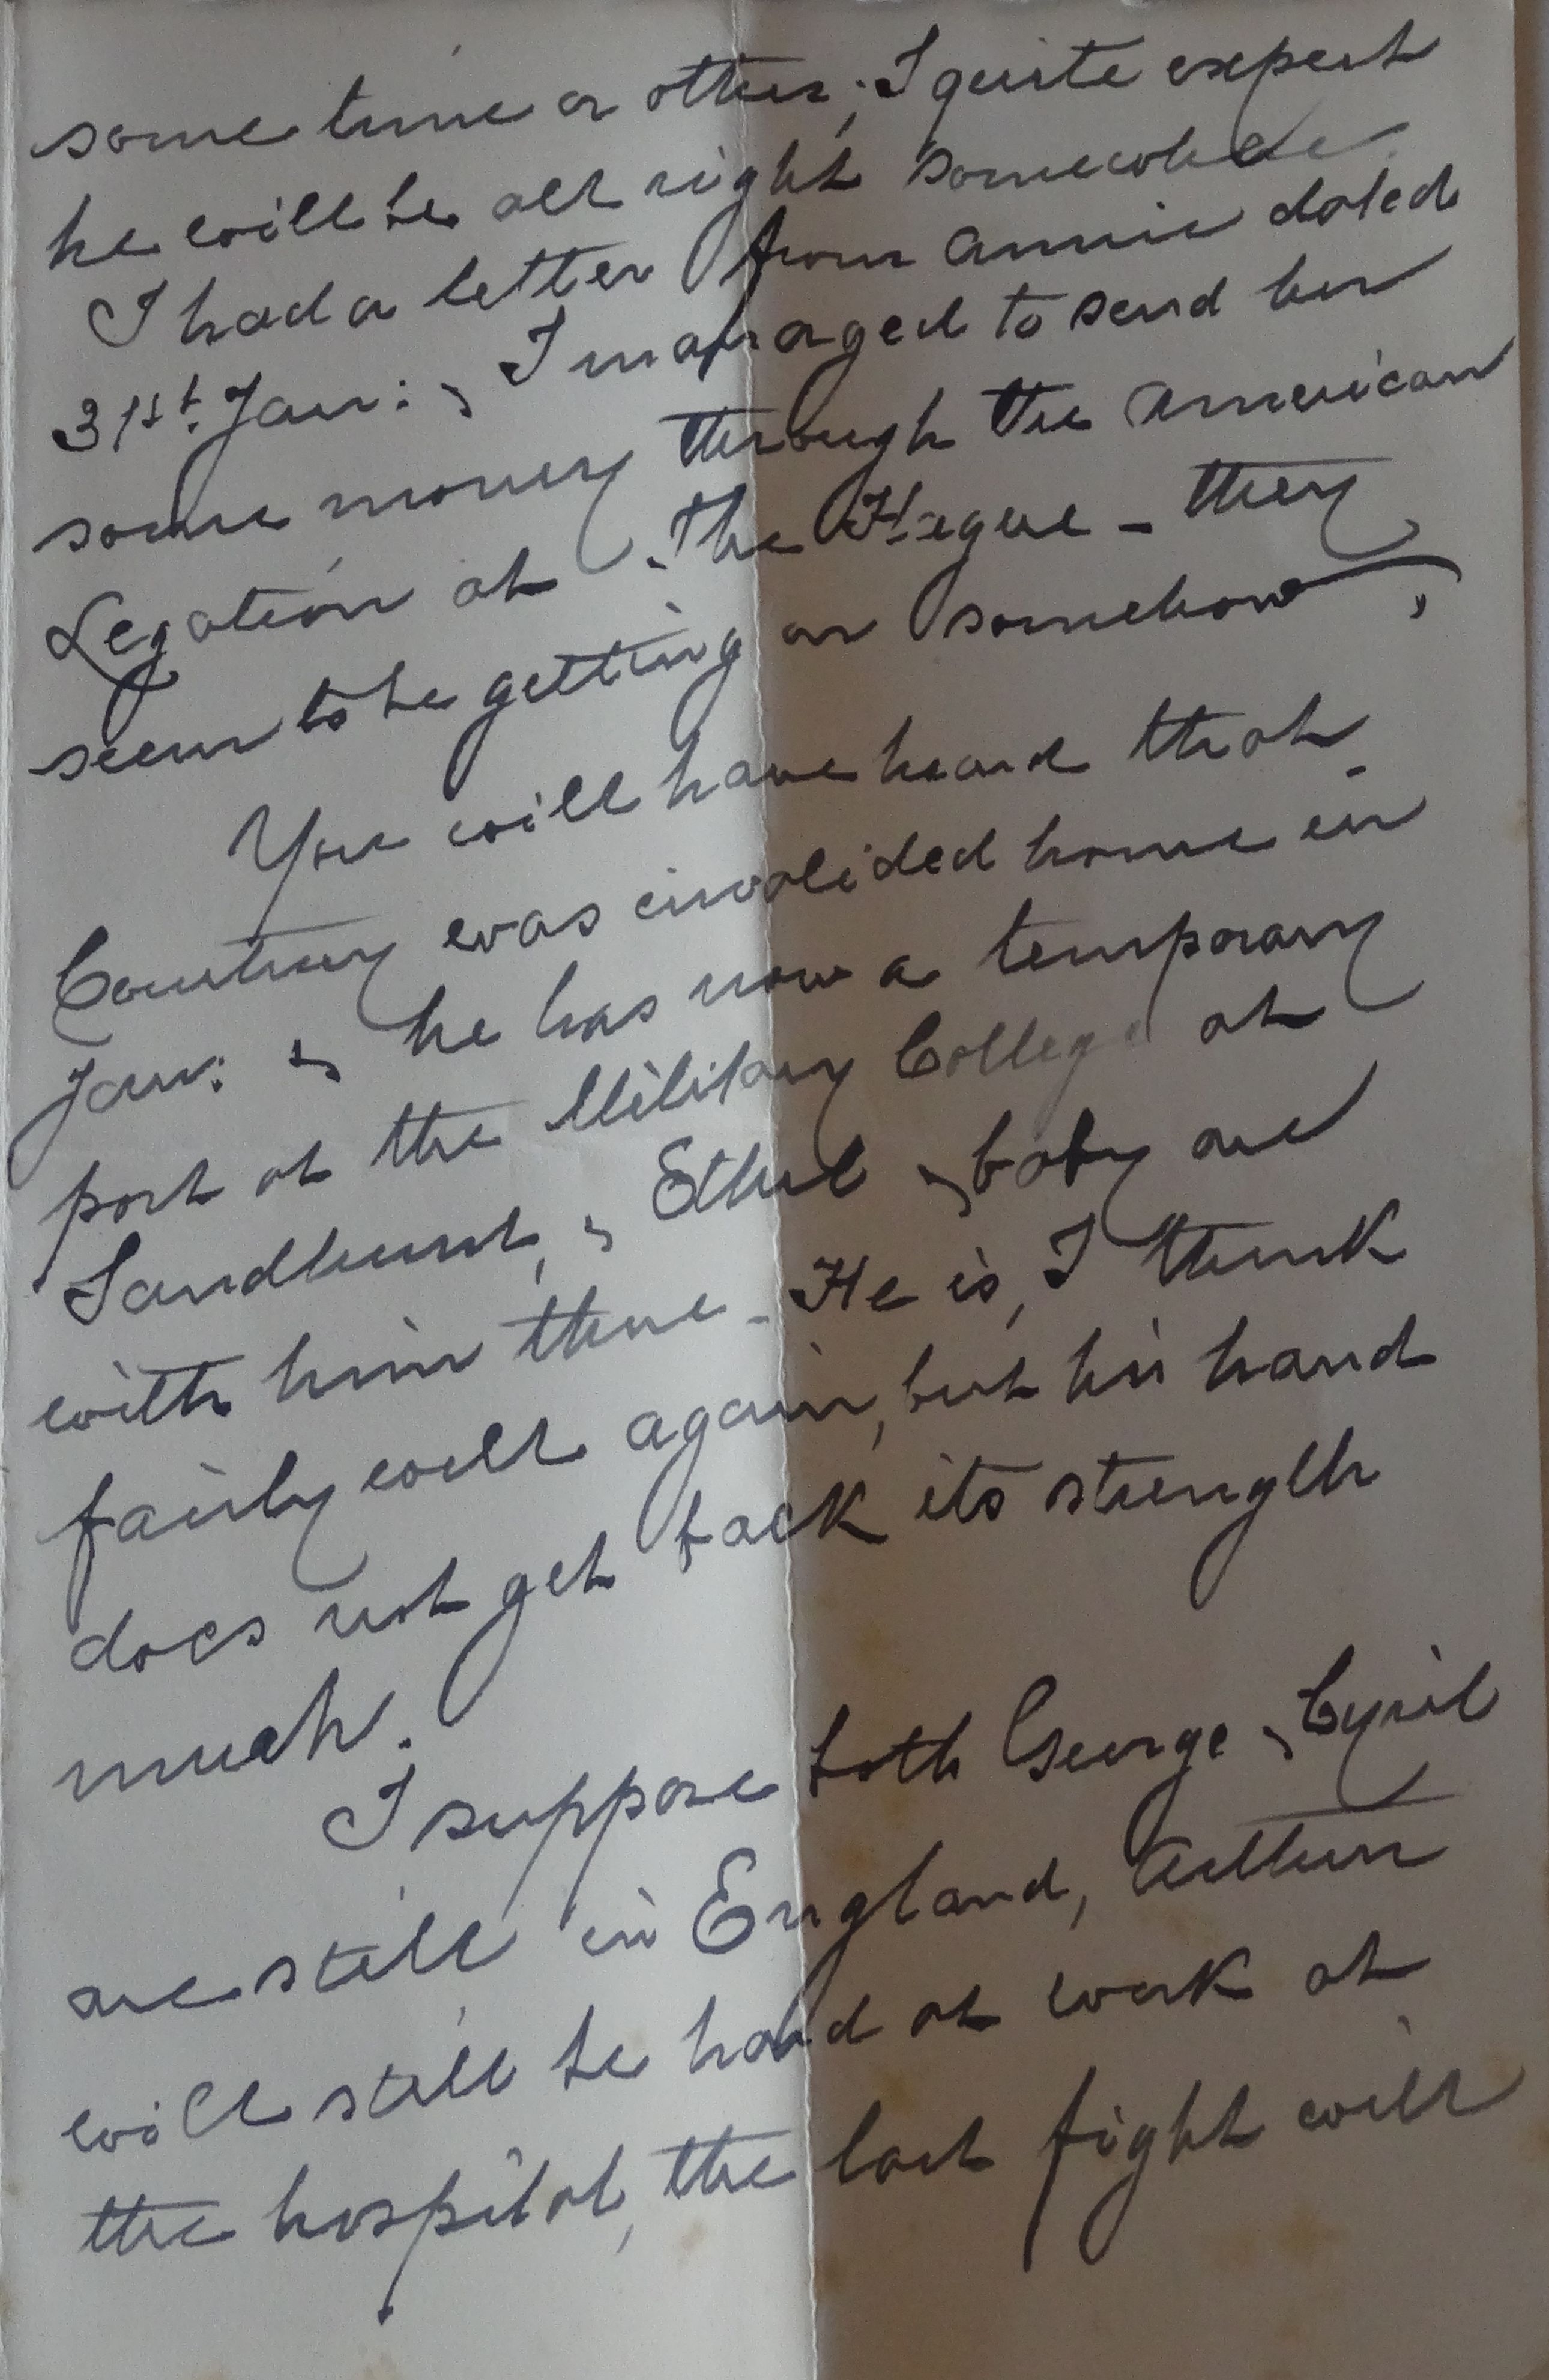 some time or other; I quite expect
he will be all right somewhere.
I had a letter from Annie dated
31st. Jan: & I managed to send her
some money through the American
Legation at The Hague – they
seem to be getting on somehow.
You will have heard that
Courtney was invalided home in
Jan: & he has now a temporary
post at the Military College at
Sandhurst, & Ethel & baby are
with him there – He is, I think
fairly well again, but his hand
does not get back its strength
much.
I suppose both George & Cyril
are still in England, Arthur
will still be hard at work at
the hospital, the last fight will